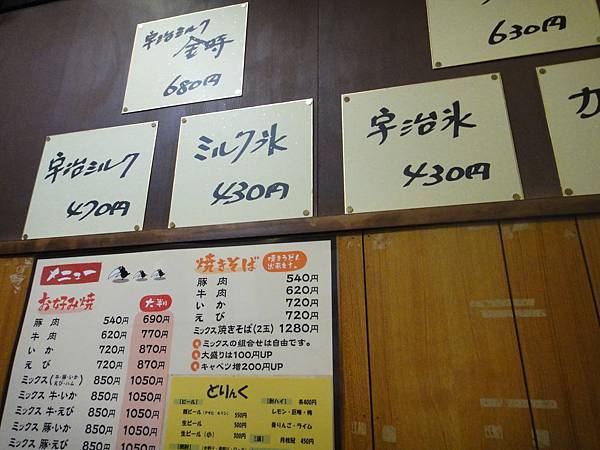 宇治ミルク
金時
680円
630円
宇治ミルク
470円
ミルク氷
430円
宇治氷
430円
カ
メニュー
お好み焼 大判
豚肉 540円 690円
牛肉 620円 770円
いか 720円 870円
えび 720円 870円
ミックス(牛・豚・いか えび・ハム) 850円 1050円
ミックス 牛・いか 850円 1050円
ミックス 牛・えび 850円 1050円
ミックス 豚・いか 850円 1050円
ミックス 豚・えび 850円 1050円
焼きそば 焼きうどん 出来ます。
豚肉 540円
牛肉 620円
いか 720円
えび 720円
ミックス焼きそば(2玉) 1280円
ミックスの組合せは自由です。
大盛りは100円UP
キャベツ増200円UP
どりんく
[ビール]
生ビール 500円
生ビール (小) 300円
[酎ハイ] 各400円
レモン・巨峰・梅
青りんご・ライム
[酒] 月桂冠 450円